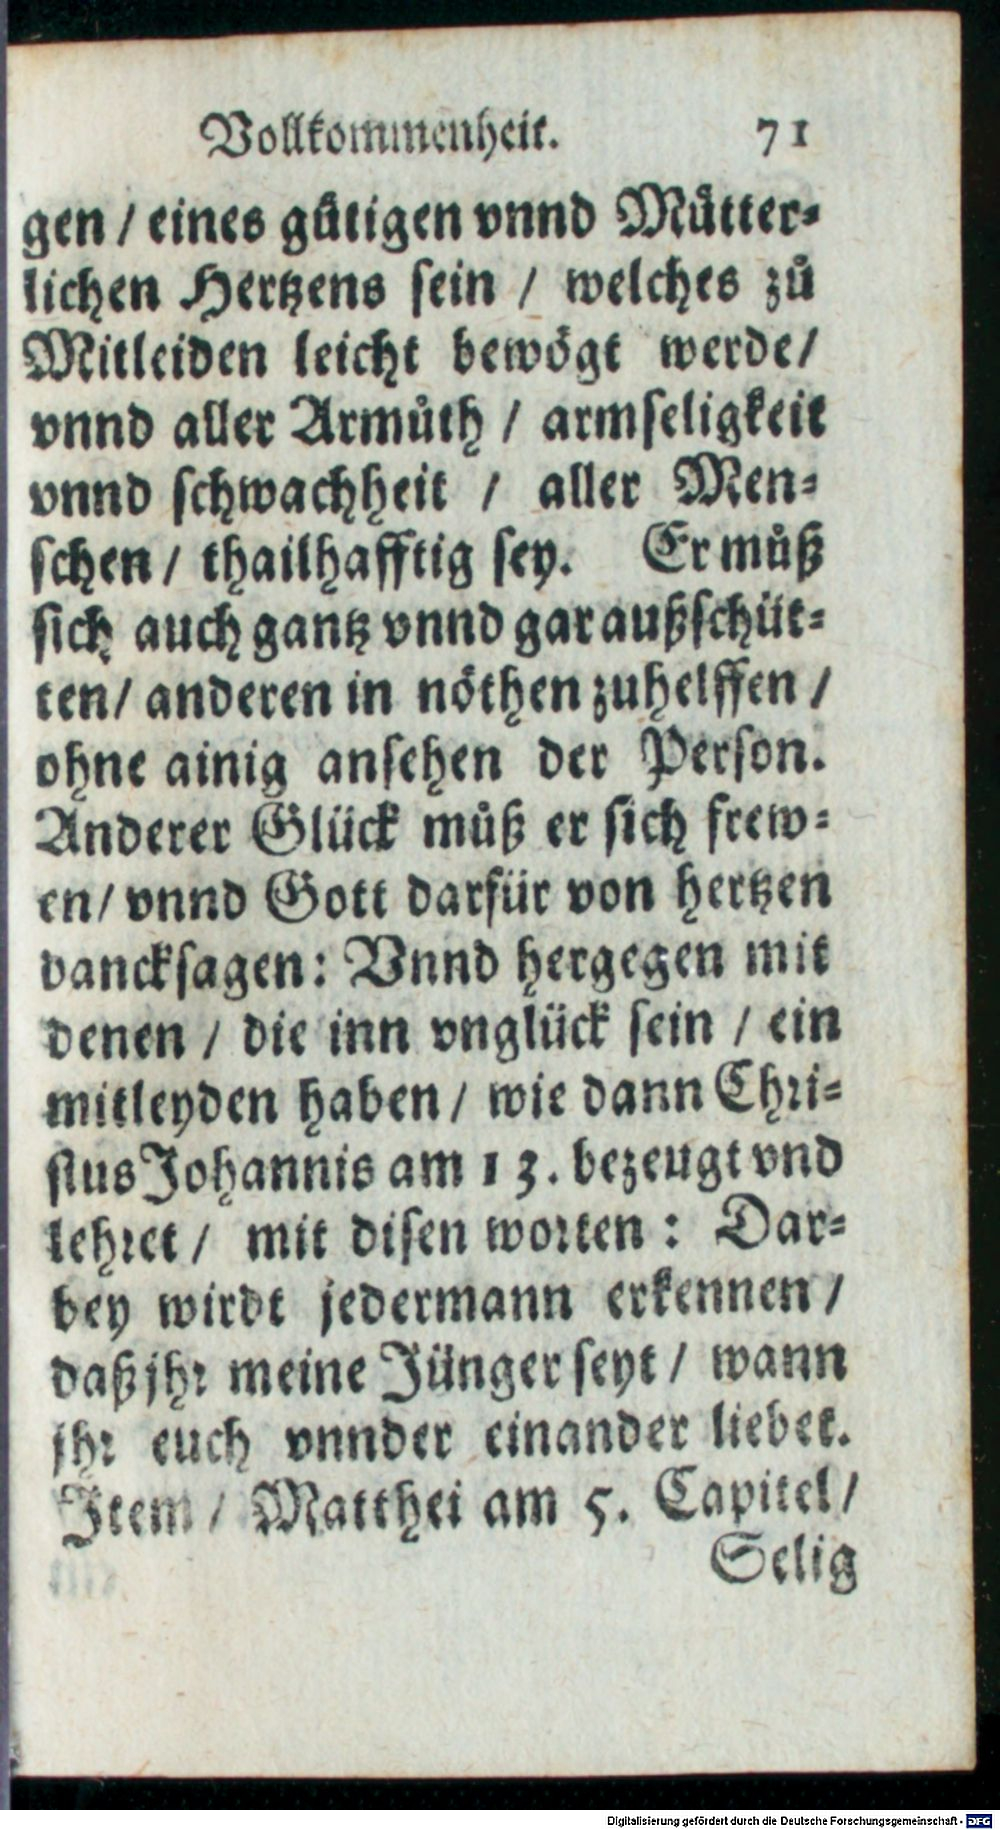 Vollkommenheit. 71
gen / eines gůtigen vnnd Můtter-
lichen Hertzens sein / welches zů
Mitleiden leicht bewögt werde/
vnnd aller Armůth / armseligkeit
vnnd schwachheit / aller Men-
schen / thailhafftig sey. Er můß
sich auch gantz vnnd gar außschüt-
ten/ anderen in nöthen zuhelffen /
ohne ainig ansehen der Person.
Anderer Glück můß er sich frew-
en/ vnnd Gott darfür von hertzen
dancksagen: Vnnd hergegen mit
denen / die inn vnglück sein / ein
mitleyden haben / wie dann Chri-
stus Johannis am 13. bezeugt vnd
lehret / mit disen worten : Dar-
bey wirdt jedermann erkennen /
daß jhr meine Jünger seyt / wann
jhr euch vnnder einander liebet.
Item / Matthei am 5. Capitel /
Selig
Digitalisierung gefördert durch die Deutsche Forschungsgemeinschaft - DFG